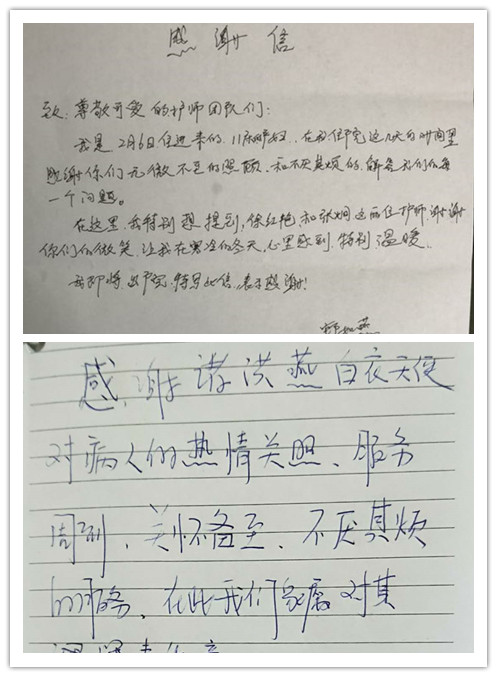 感谢信
致：尊敬可爱的护师团队们：
我是2月6日住进来的，11床 在我住院这几天的时间里
感谢你们无微不至的照顾，和不厌其烦的，解答我们的每
一个问题。
在这里，我特别想提到，徐红艳，和张娟这两位护师，谢谢
你们的微笑，让我在寒冷的冬天，心里感到，特别温暖。
我即将出院，特写此信，表示感谢！
感谢 洪燕白衣天使
对病人的热情关照、服务
周到、关怀备至、不厌其烦
的服务，在此我们家属对其